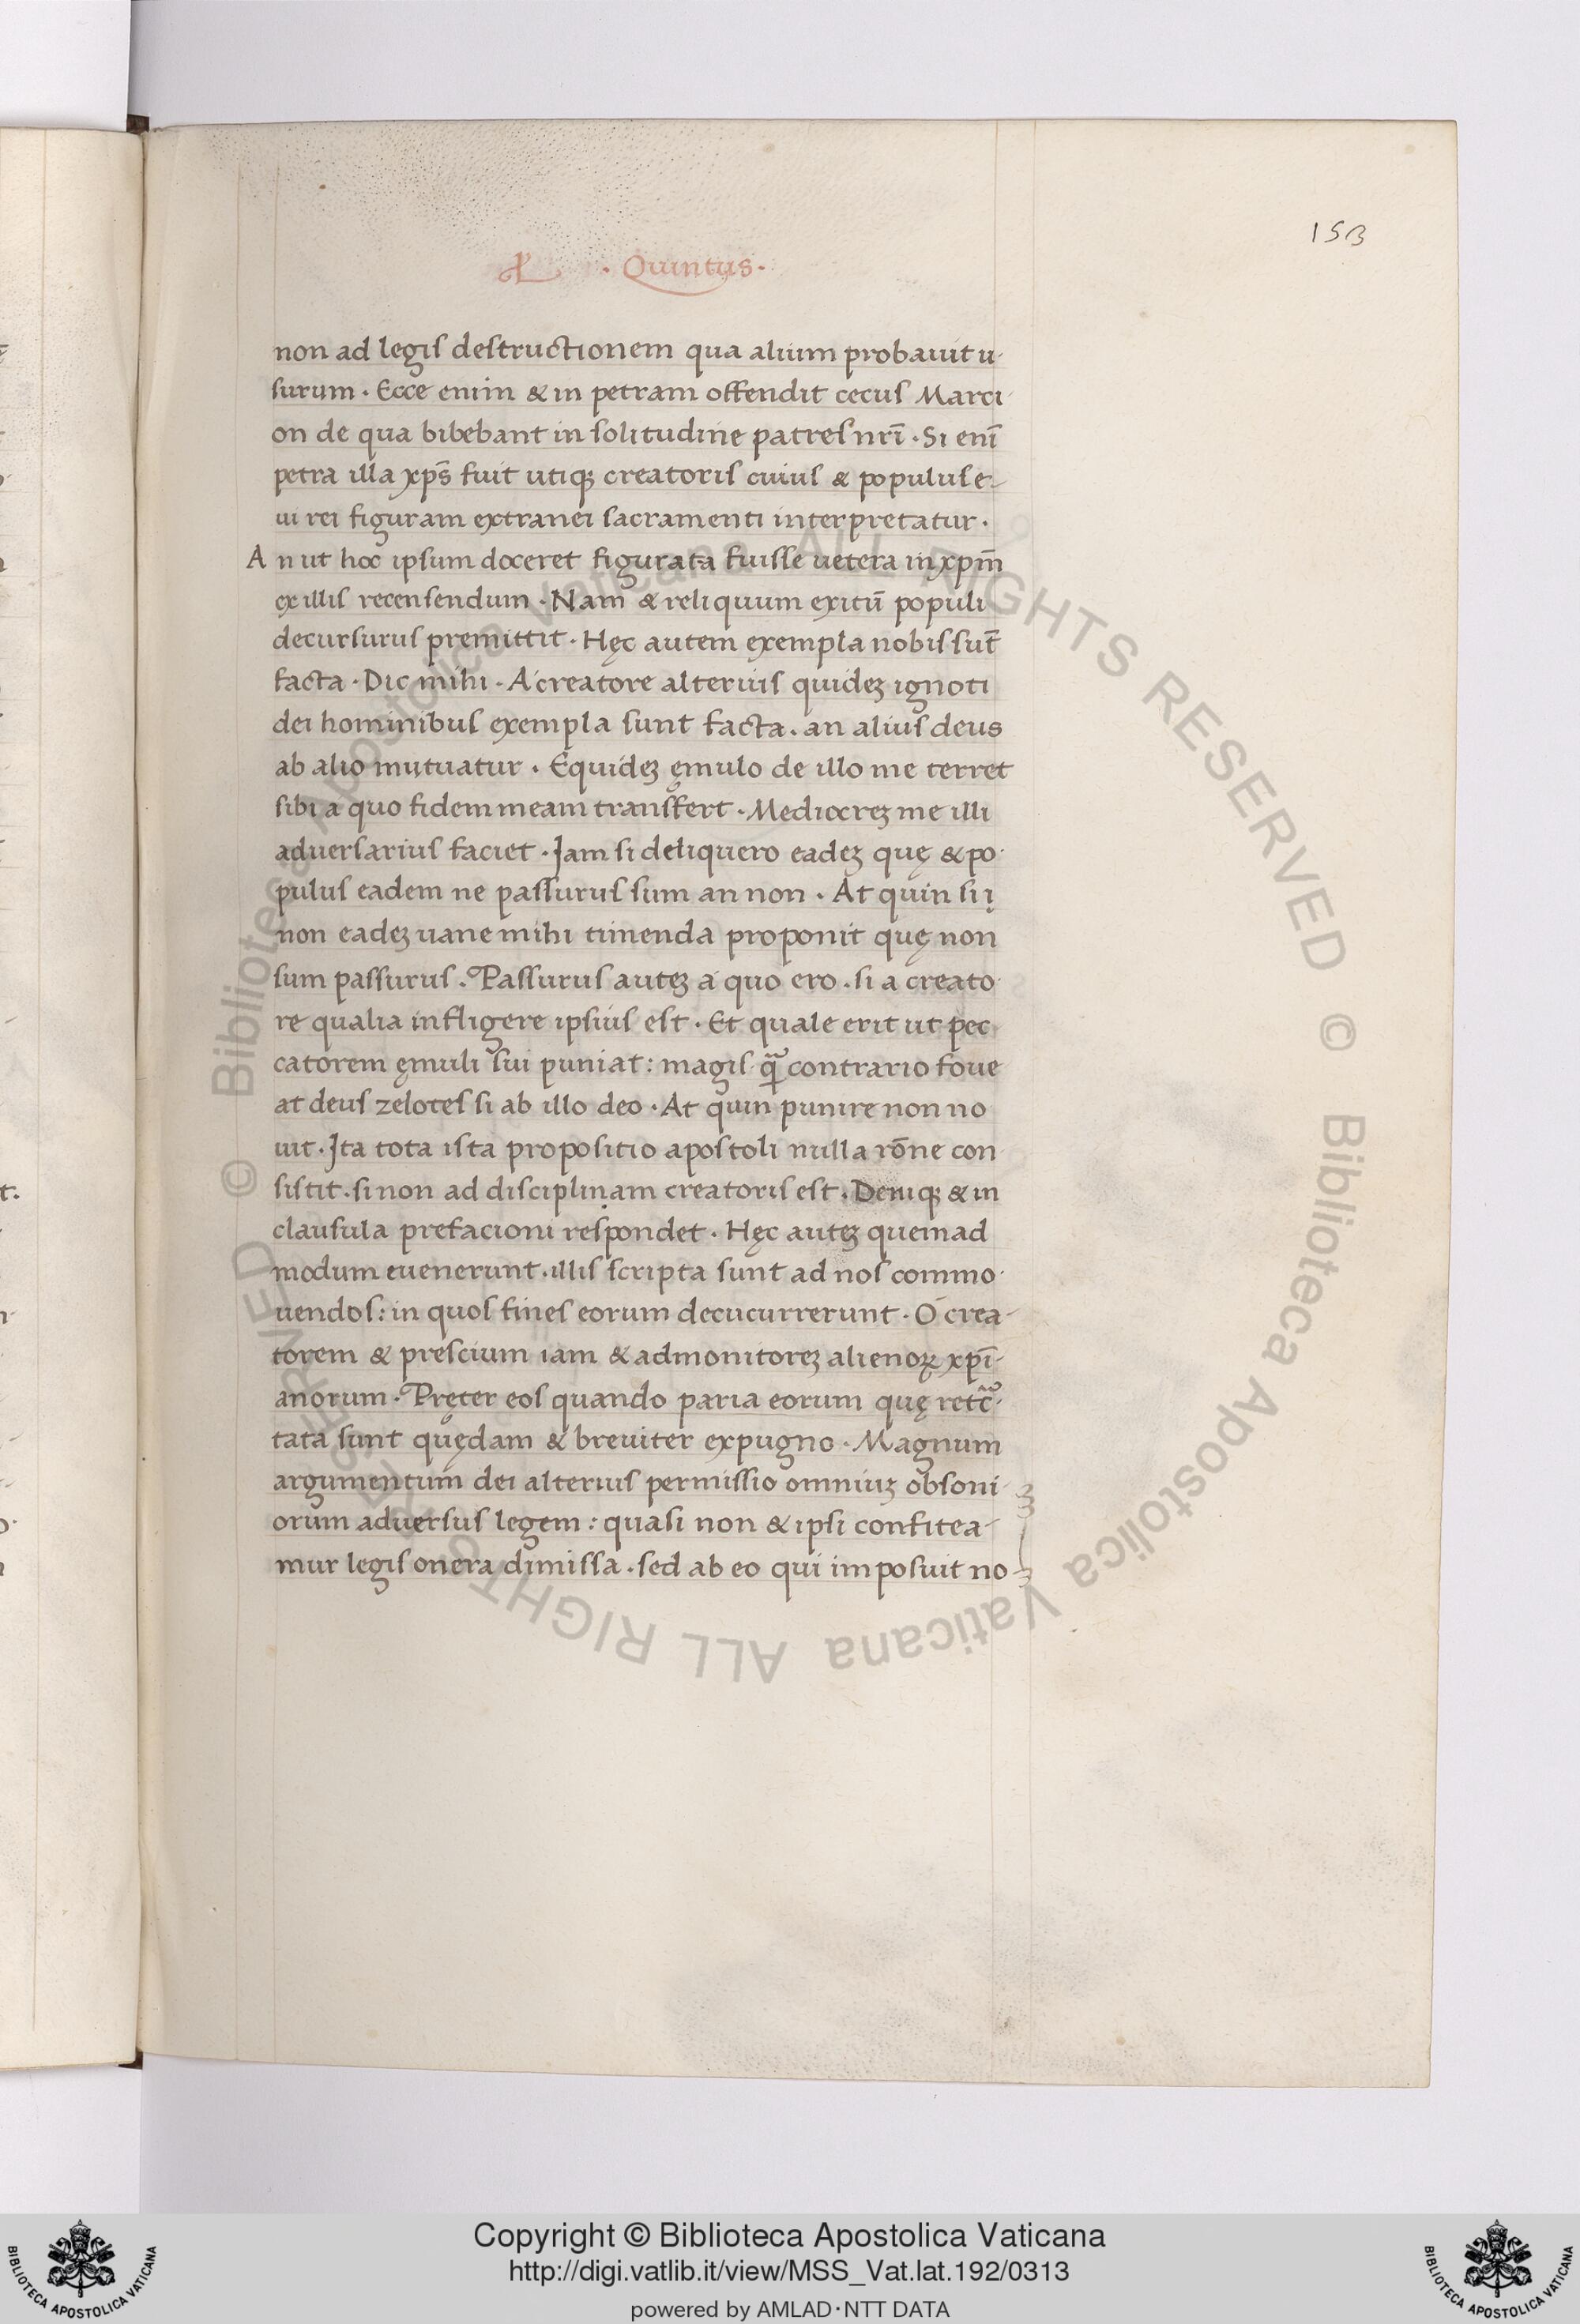 153
L · Quintus ·
non ad legis destructionem qua alium probauit u-
surum · Ecce enim & in petram offendit cecus Marci-
on de qua bibebant in solitudine patres nrī · Si enī
petra illa xp̄s fuit utiqꝫ creatoris cuius & populus e-
ui rei figuram extranei sacramenti interpretatur ·
An ut hoc ipsum doceret figurata fuisse uetera in xpm̄
ex illis recensendum · Nam & reliquum exitū populi
decursurus premittit · Hęc autem exempla nobis sut̄
facta · Dic mihi · A creatore alterius quideꝫ ignoti
dei hominibus exempla sunt facta . an alius deus
ab alio mutuatur · Equideꝫ ęmulo de illo me terret
sibi a quo fidem meam transfert · Mediocreꝫ me illi
aduersarius faciet · Jam si deliquero eadeꝫ quę & po-
pulus eadem ne passurus sum an non · At quin si ę
non eadeꝫ uane mihi timenda proponit quę non
sum passurus . Passurus auteꝫ a quo ero . si a creato-
re qualia infligere ipsius est · Et quale erit ut pec-
catorem ęmuli sui puniat : magis q̄ contrario foue
at deus zelotes si ab illo deo · At quin punire non no
uit · Jta tota ista propositio apostoli nulla rōne con
sistit . si non ad disciplinam creatoris est . Deniqꝫ & in
clausula prefacioni respondet · Hęc auteꝫ quemad
modum euenerunt . illis scripta sunt ad nos commo-
uendos : in quos fines eorum decucurrerunt · O crea-
torem & prescium iam & admonitoreꝫ alienoꝝ xpī-
anorum · Pręter eos quando paria eorum quę retc̄-
tata sunt quędam & breuiter expugno · Magnum
argumentum dei alterius permissio omniuꝫ obsoni-
orum aduersus legem : quasi non & ipsi confitea-
mur legis onera dimissa . sed ab eo qui imposuit no-
© Biblioteca Apostolica Vaticana ALL RIGHTS RESERVED © Biblioteca Apostolica Vaticana ALL RIGHTS RESERVED
BIBLIOTECA APOSTOLICA VATICANA
Copyright © Biblioteca Apostolica Vaticana
http://digi.vatlib.it/view/MSS_Vat.lat.192/0313
powered by AMLAD·NTT DATA
BIBLIOTECA APOSTOLICA VATICANA